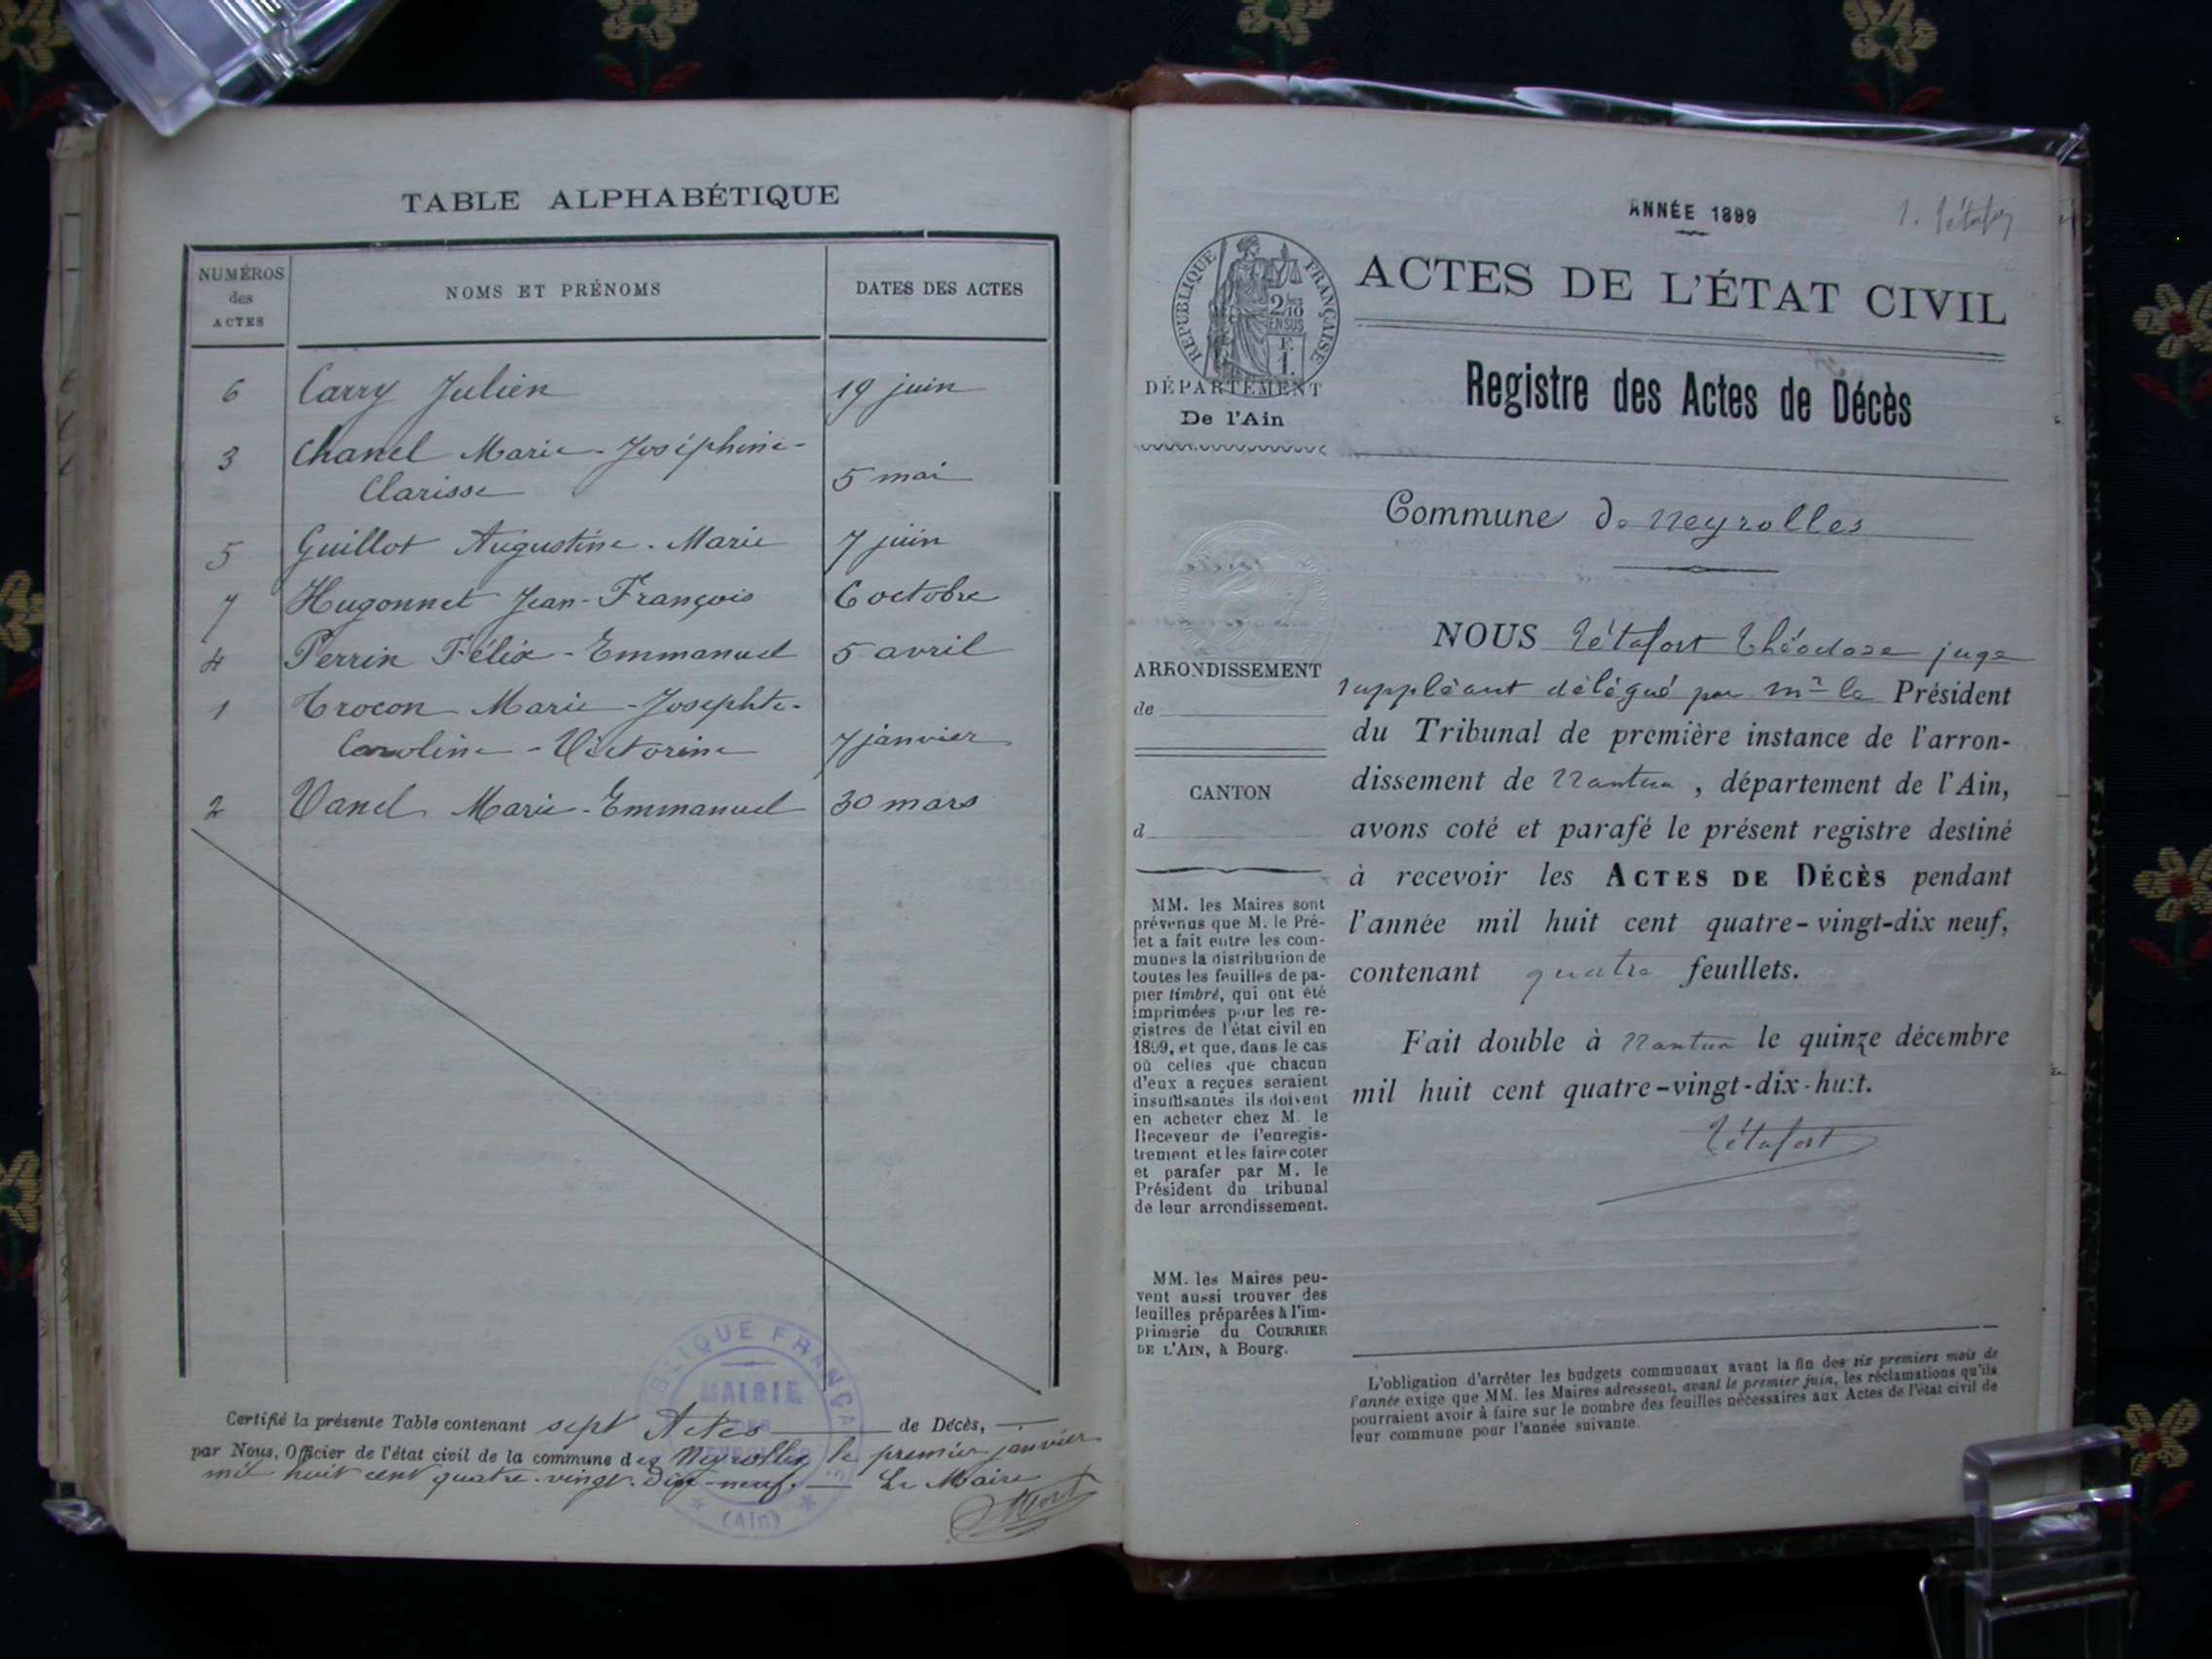 TABLE ALPHABÉTIQUE
NUMÉROS
des
ACTES
NOMS ET PRÉNOMS
DATES DES ACTES
6 Carry Julien 19 juin
3 Chanel Marie-Joséphine-
Clarisse 5 mai
5 Guillot Augustine-Marie 7 juin
7 Hugonnet Jean-François 6 octobre
4 Perrin Félix-Emmanuel 5 avril
1 Trocon Marie-Josephte-
Caroline-Victorine 7 janvier
2 Vanel Marie-Emmanuel 30 mars
Certifié la présente Table contenant sept Actes de Décès,
par Nous, Officier de l'état civil de la commune des Neyrolles, le premier janvier
mil huit cent quatre-vingt-dix-neuf. Le Maire
MAIRIE
DES
NEYROLLES
(Ain)
ANNÉE 1899
1. Tétafor
RÉPUBLIQUE FRANÇAISE
ACTES DE L'ÉTAT CIVIL
DÉPARTEMENT
De l'Ain
Registre des Actes de Décès
Commune de Neyrolles
ARRONDISSEMENT
de
CANTON
d
NOUS Tétafort Théodose juge
suppléant délégué par Mr le Président
du Tribunal de première instance de l'arron-
dissement de Nantua, département de l'Ain,
avons coté et parafé le présent registre destiné
à recevoir les ACTES DE DÉCÈS pendant
l'année mil huit cent quatre-vingt-dix neuf,
contenant quatre feuillets.
Fait double à Nantua le quinze décembre
mil huit cent quatre-vingt-dix-huit.
Tétafort
MM. les Maires sont
prévenus que M. le Pré-
fet a fait entre les com-
munes la distribution de
toutes les feuilles de pa-
pier timbré, qui ont été
imprimées pour les re-
gistres de l'état civil en
1899, et que, dans le cas
où celles que chacun
d'eux a reçues seraient
insuffisantes ils doivent
en acheter chez M. le
Receveur de l'enregis-
trement et les faire coter
et parafer par M. le
Président du tribunal
de leur arrondissement.
MM. les Maires peu-
vent aussi trouver des
feuilles préparées à l'im-
primerie du COURRIER
DE L'AIN, à Bourg.
L'obligation d'arrêter les budgets communaux avant la fin des six premiers mois de
l'année exige que MM. les Maires adressent, avant le premier juin, les réclamations qu'ils
pourraient avoir à faire sur le nombre des feuilles nécessaires aux Actes de l'état civil de
leur commune pour l'année suivante.